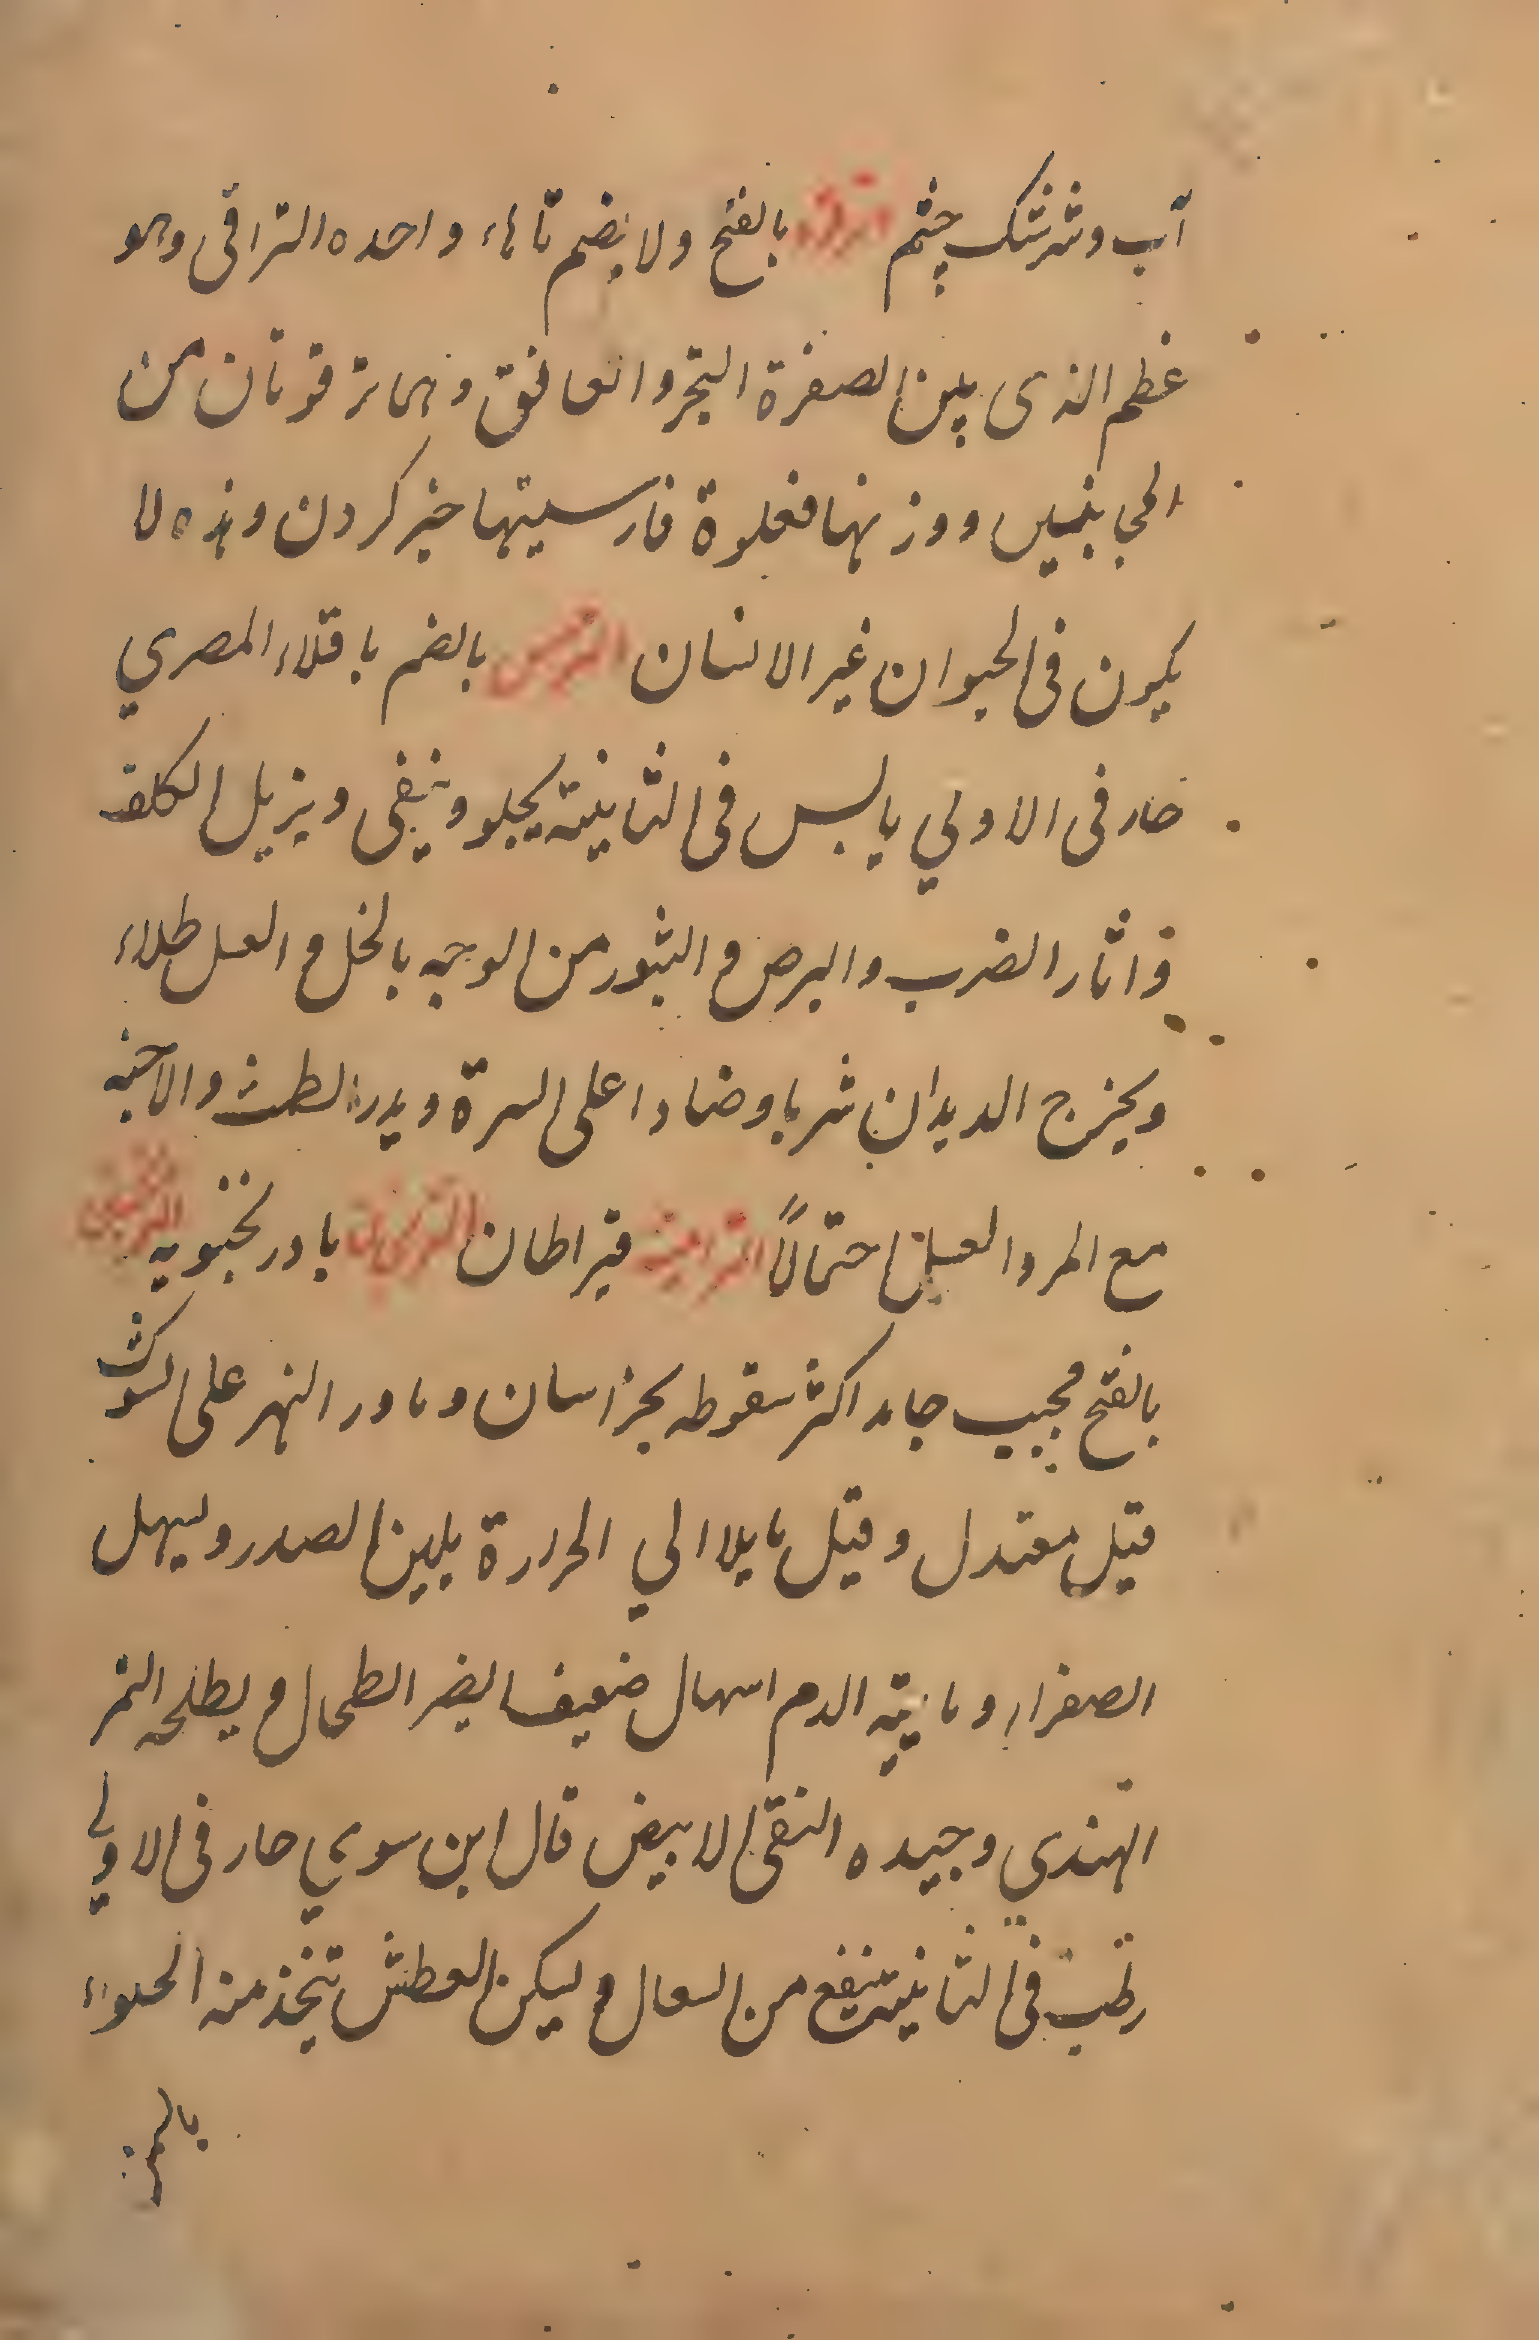 آب وشرشک چشم ترقوه بالفتح ولا یضم تاء واحده التراقی وهو
عظم الذی بین الصغرة النحر والعاتق وهما ترقوتان من
الجانبین ووزنها فعلوة فارسیتها خبر کردن وهذه لا
یکون فی الحیوان غیر الانسان الترمس بالضم باقلاء المصري
حار فی الاولي یابس فی الثانیته یجلو وینفی ویزیل الکلف
واثار الضرب والبرص والبثور من الوجه بالخل والعسل طلاء
ویخرج الدیدان شربا وضمادا علی السرة ویدر الطمث والاجنه
مع المر والعسل احتمالاً قیراطان بادرنجبویه الترنجبین
بالفتح جامد اکثر سقوطه بخراسان وماور النهر علی الشوک
قیل معتدل وقیل مایلا الي الحرارة یلین الصدر ویسهل
الصفراء ومایئة الدم اسهال ضعیفا یضر الطحال ویصلحه التمر
الهندي وجیده النقی الابیض قال ابن سوي حار فی الاولي
رطب فی الثانیته ینفع من السعال ویسکن العطش تتخذ منه الحلواء